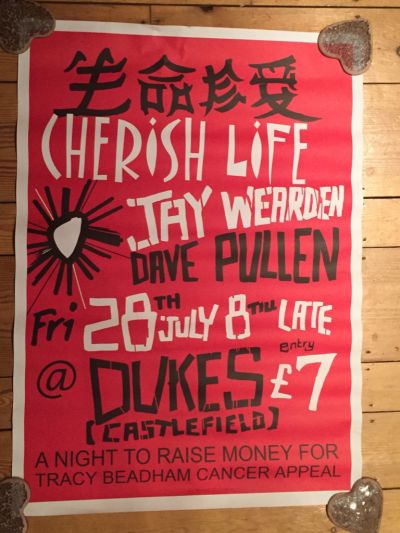 生命珍受
CHERiSH LiFE
JAY WEARDEN
DAVE PULLEN
Fri 28TH JULY 8 TiLL LATE
@ DUKES entry £7
[CASTLEFIELD]
A NIGHT TO RAISE MONEY FOR
TRACY BEADHAM CANCER APPEAL